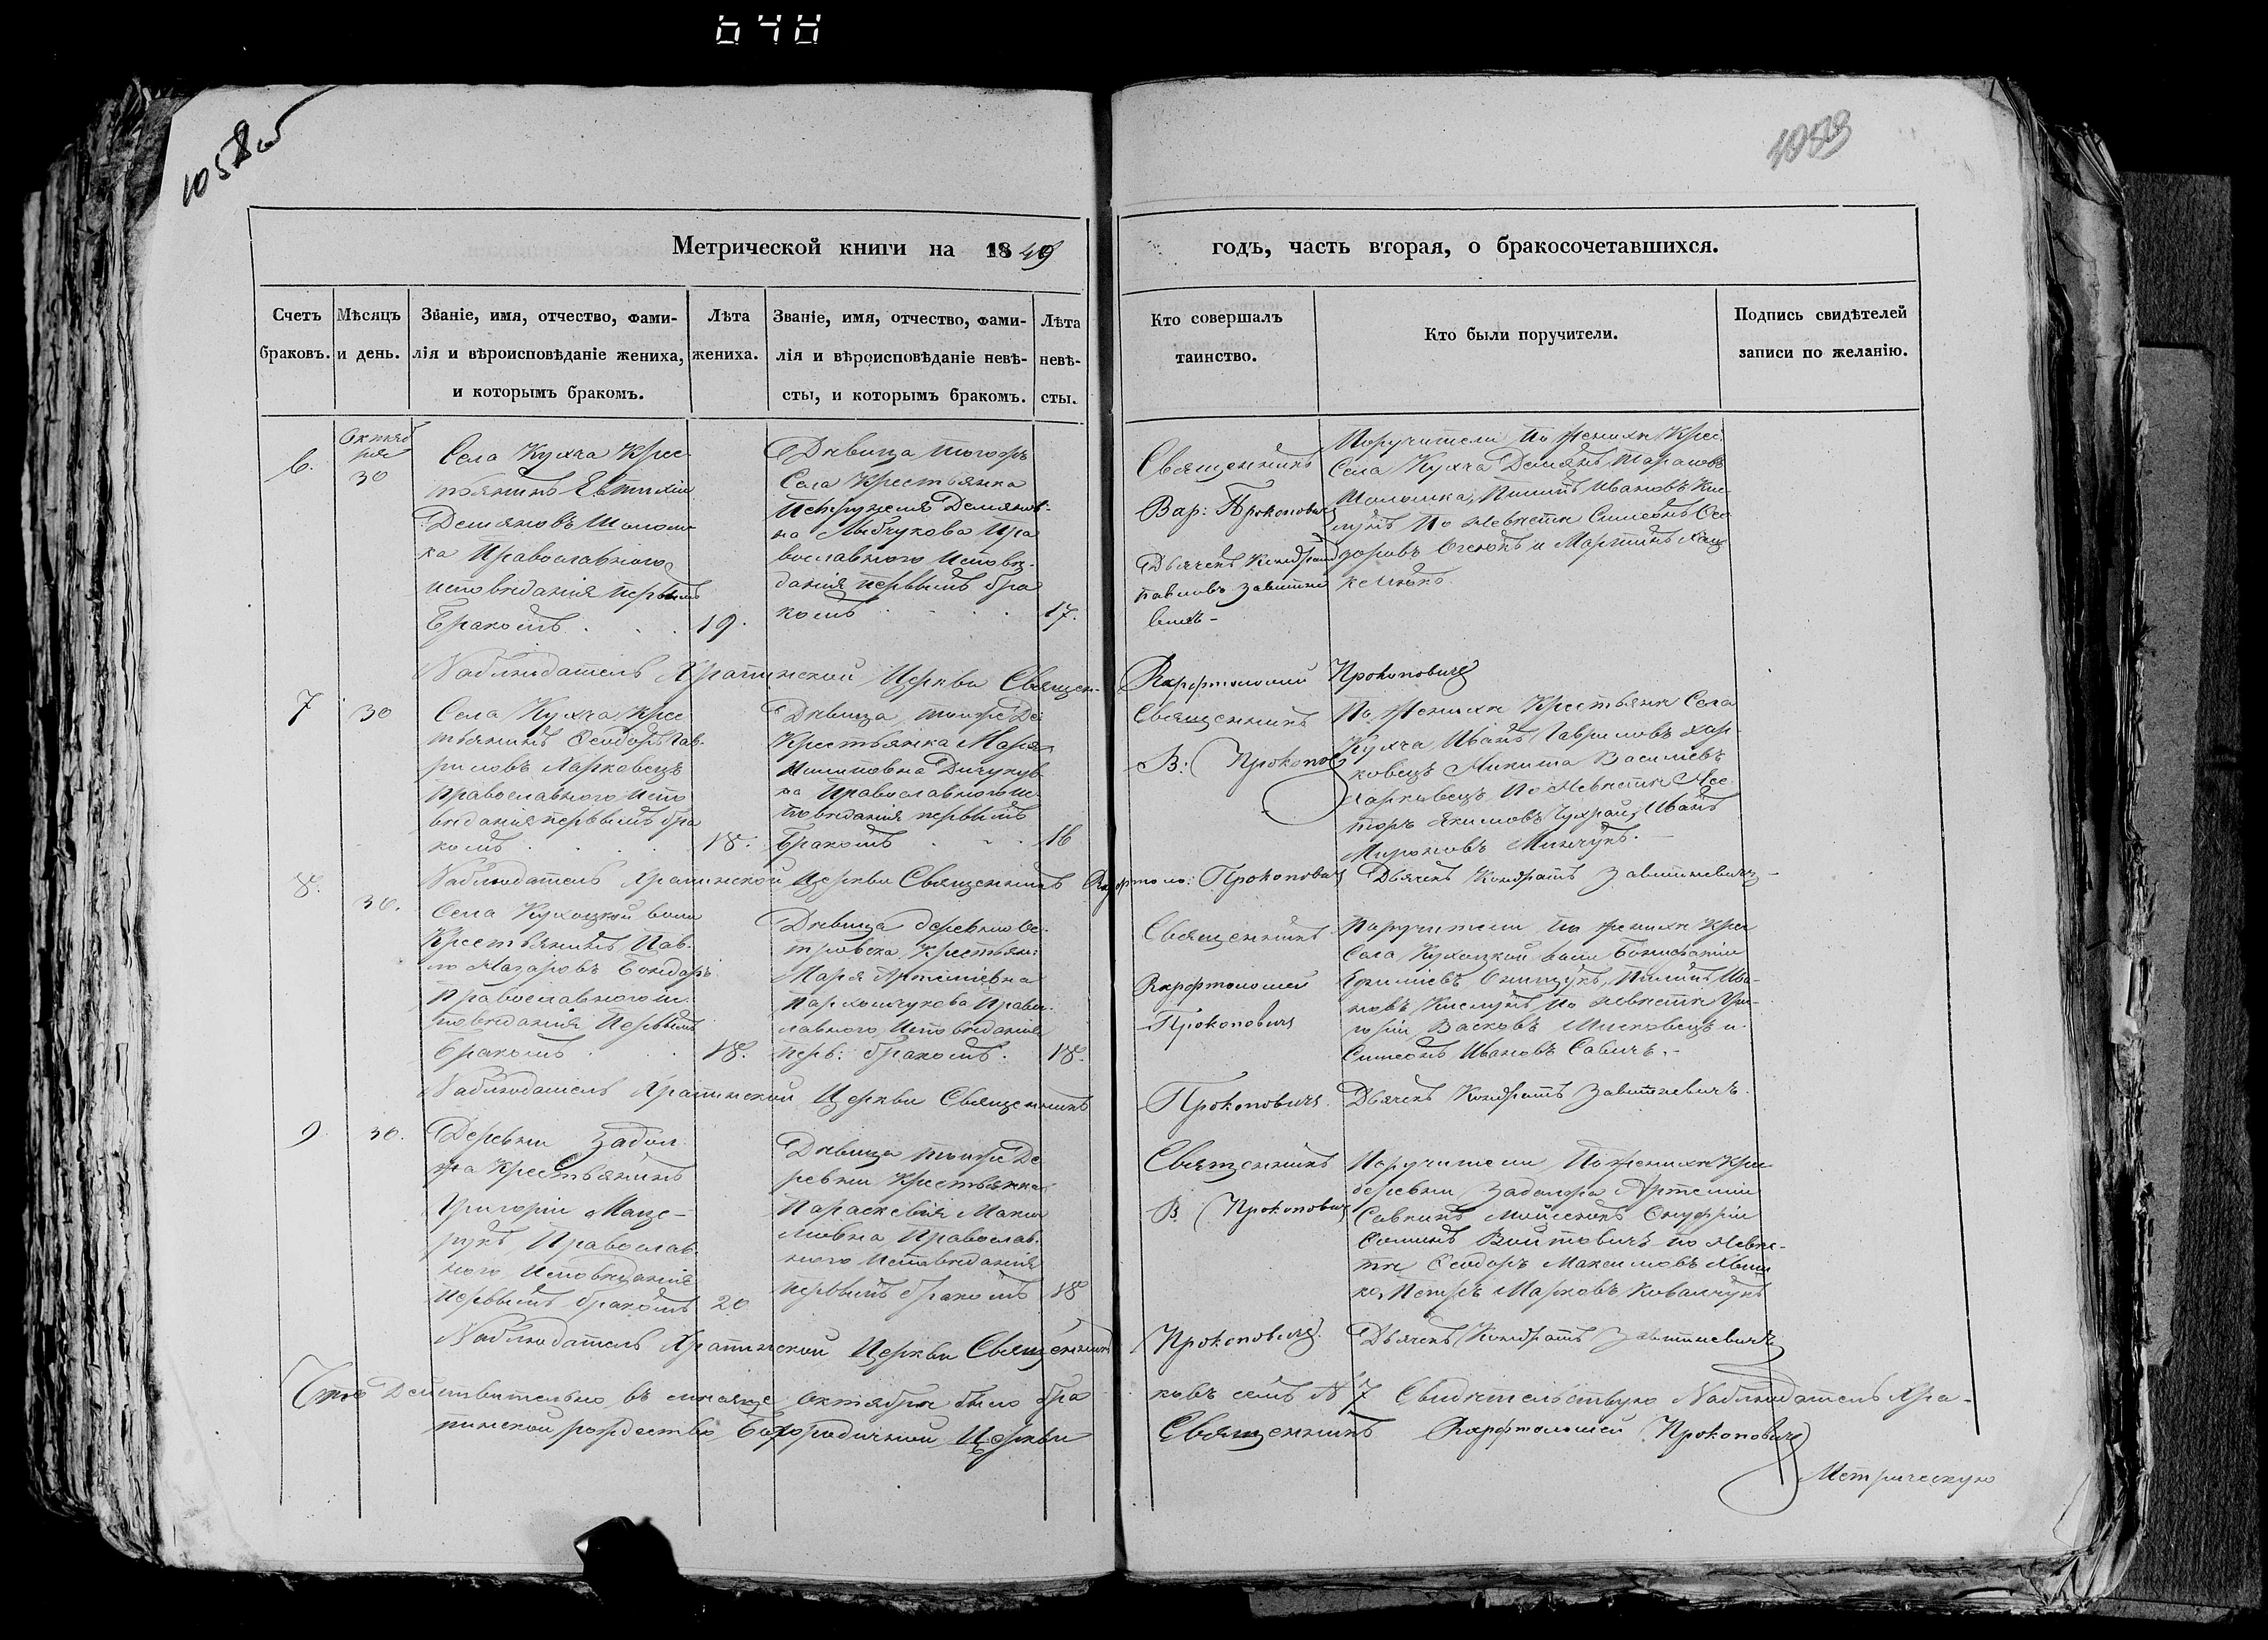 648
1058 об
1059
Метрической книги на 1849
годъ, часть вторая, о бракосочетавшихся.
Счетъ браковъ.
Мѣсяцъ и день.
Званіе, имя, отчество, фами-
лія и вѣроисповѣданіе жениха,
и которымъ бракомъ.
Лѣта
жениха.
Званіе, имя, отчество, фами-
лія и вѣроисповѣданіе невѣ-
сты, и которымъ бракомъ.
Лѣта
невѣ-
сты.
Кто совершалъ
таинство.
Кто были поручители.
Подпись свидѣтелей
записи по желанію.
6.
Октяб
ря
30
Села Кухча Крес
тьянинъ Евтихій
Демяновъ Шоломи
ка Православного
исповѣданія первымъ
бракомъ
19.
Дѣвица тогожъ
Села Крестьянка
Демянов-
на Пра
вославного исповѣ-
данія первымъ бра
комъ
17.
Священникъ
Вар: Прокоповичъ
Дьячекъ Кондратъ
Павловъ Завитне
вичъ-
Поручители По женихѣ Крес
Села Кухча Демянъ Тарасовъ
Пилипъ Ивановъ Кис-
лукъ По невѣстѣ Симеонъ Ѳео
доровъ и Мартинъ
Наблюдатель Хратинской Церкви Священ-
Варфоломей Прокоповичъ
7
30
Села Кухча Крес
тьянинъ Ѳеодоръ Гав-
риловъ Харковецъ
Православного испо
вѣданія первымъ бра
комъ
18.
Дѣвица тойже Де
Крестьянка Марія
Пилиповна
Православного ис
повѣданія первымъ
бракомъ
16
Священникъ
В: Прокопов
По женихѣ Крестьяни Села
Кухча Иванъ Гавриловъ Хар-
ковецъ Никита Василіевъ
Харковецъ, По невѣстѣ Нес
торъ Якимовъ Чухрай, Иванъ
Мироновъ
Наблюдатель Хратинской Церкви Священникъ Варфоло: Прокоповичъ Дьячекъ Кондратъ Завитневичъ-
8.
30.
Села Кухоцкой воли
Крестьянинъ Пав-
ло Назаровъ Бондаръ
Православного ис
повѣданія Первымъ
бракомъ
18.
Дѣвица деревни Ос-
тровска Крестьян:
Марія Артеміевна
Пархомчукова Право
славного Исповѣданія
перв: бракомъ.
18.
Священникъ
Варфоломей
Прокоповичъ
Поручители по женихѣ Крес
Села Кухоцкой воли Бонифатій
Пилипъ Ива-
новъ Кислукъ, По невѣстѣ Гри-
горій Васковъ и
Симеонъ Ивановъ Савичъ.-
Наблюдатель Хратинской Церкви Священникъ
Прокоповичъ. Дьячекъ Кондратъ Завитневичъ.
9
30.
Деревни Задол
жа Крестьянинъ
Григорій
Православ-
ного Исповѣданія
Первымъ бракомъ
20
Дѣвица тойже Де
ревни Крестьянка
Параскевія Макси
мовна Православ-
ного Исповѣданія
первымъ бракомъ
18
Священникъ
В. Прокоповичъ
Поручители По женихѣ Крес
деревни Задолжа Артемій
Онуфрій
Войтовичъ по невѣс-
тѣ Ѳеодоръ Максимовъ
Петръ Марковъ Ковалчукъ
Наблюдатель Хратинской Церкви Священникъ
Прокоповичъ. Дьячекъ Кондратъ Завитневичъ
Что Действительно въ мѣсяце октябрѣ было бра
ковъ семъ № 7 Свидѣтельствую Наблюдатель Хра-
тинской рождество Богородичной Церкви
Священникъ Варфоломей Прокоповичъ
Метрическую